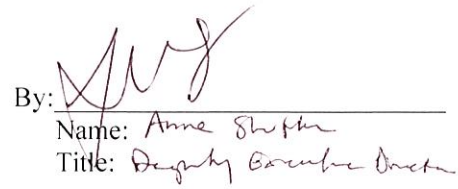 By:
Name: Anne
Title: Deputy Executive Director